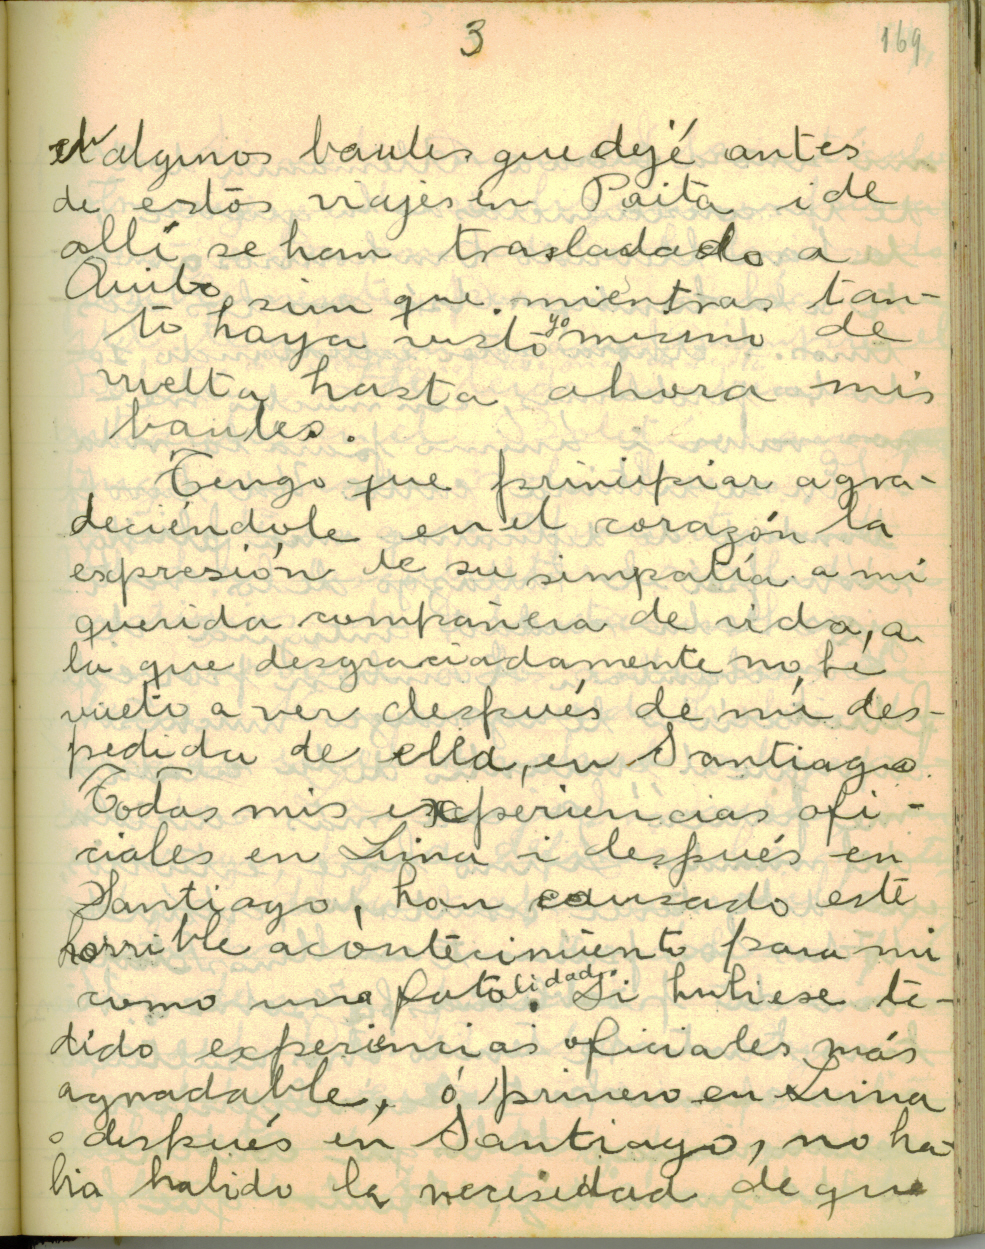 3
169
en algunos baules que dejé antes
de estos viajes en Paita i de
allí se han trasladado a
Quito sin que mientras tan-
to haya visto yo mismo de
vuelta hasta ahora mis
baules.
Tengo que principiar agra-
deciéndole en el corazón la
expresión de su simpatía a mi
querida compañera de vida, a
la que desgraciadamente no hé
vueto a ver después de mi des-
pedida de ella, en Santiago.
Todas mis experiencias ofi-
ciales en Lima i después en
Santiago, han causado este
horrible acontecimiento para mi
como una fatalidad. Si hubiese te-
dido experiencias oficiales más
agradable, ó primero en Lima
o después en Santiago, no ha-
bia habido la necesidad de que